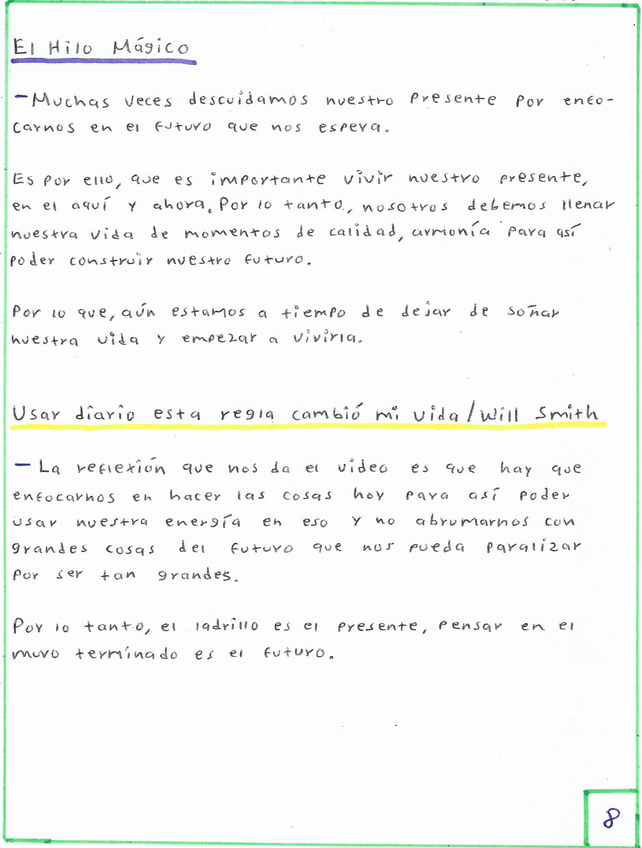 El Hilo Mágico
- Muchas veces descuidamos nuestro presente por enfo-
carnos en el futuro que nos espera.
Es por ello, que es importante vivir nuestro presente,
en el aquí y ahora. Por lo tanto, nosotros debemos llenar
nuestra vida de momentos de calidad, armonía para así
poder construir nuestro futuro.
Por lo que, aún estamos a tiempo de dejar de soñar
nuestra vida y empezar a vivirla.
Usar diario esta regla cambió mi vida / Will Smith
- La reflexión que nos da el video es que hay que
enfocarnos en hacer las cosas hoy para así poder
usar nuestra energía en eso y no abrumarnos con
grandes cosas del futuro que nos pueda paralizar
por ser tan grandes.
Por lo tanto, el ladrillo es el presente, pensar en el
muro terminado es el futuro.
8